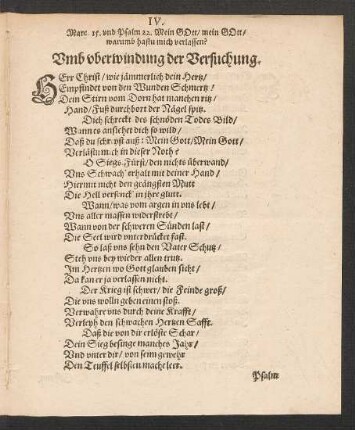 IV.
Marc. 15. vnd Psalm 22. Mein GOtt/ mein GOtt/
warumb hastu mich verlassen?
Vmb vberwindung der Versuchung.
HErr Christ/ wie jämmerlich dein Hertz/
Empfindet von den Wunden Schmertz/
Dem Stirn vom Dorn hat manchen ritz/
Hand/ Fuß durchbort der Nägel spitz.
Dich schreckt des schnöden Todes Bild/
Wann es ansiehet dich so wild/
Daß du schreyst auß: Mein Gott/ Mein Gott/
Verläst mich in dieser Noth?
O Siegs Fürst/ den nichts überwand/
Vns Schwach' erhalt mit deiner Hand/
Hiermit nicht den geängsten Mutt
Die Hell versenck' in ihre glutt.
Wann/ was vom argen in vns lebt/
Vns aller massen widerstrebt/
Wann von der schweren Sünden last/
Die Seel wird vnterdrücket fast.
So laß vns sehn den Vater Schutz/
Steh vns bey wieder allen trutz.
Im Hertzen wo Gott glauben sieht/
Da kan er ja verlassen nicht.
Der Krieg ist schwer/ die Feinde groß/
Die vns wolln geben einen stoß.
Verwahre vns durch deine Krafft/
Verleyh den schwachen Hertzen Safft.
Daß die von dir erlöste Schar/
Dein Sieg besinge manches Jahr/
Vnd vnter dir/ von seim gewehr
Den Teuffel selbsten mache leer.
Psalm